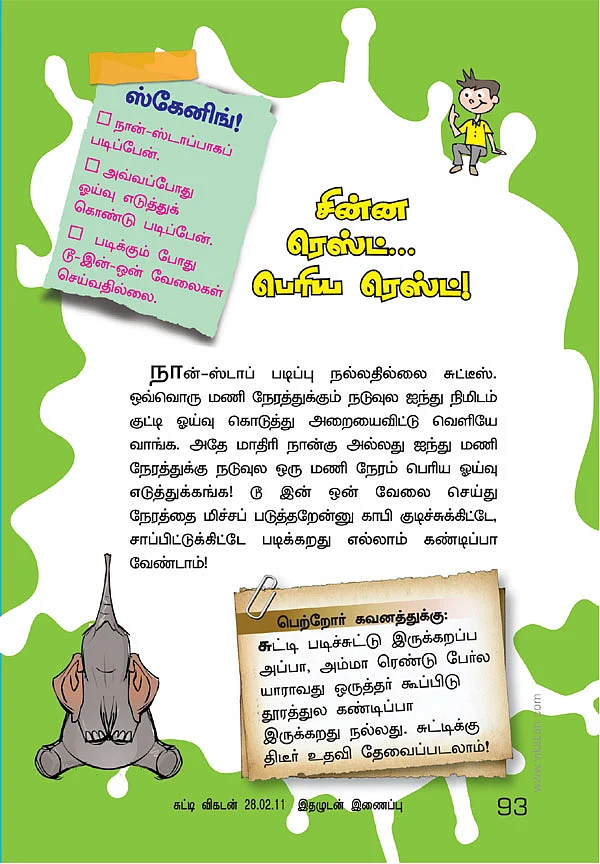 ஸ்கேனிங்!
☐ நான்-ஸ்டாப்பாகப்
படிப்பேன்.
☐ அவ்வப்போது
ஓய்வு எடுத்துக்
கொண்டு படிப்பேன்.
☐ படிக்கும் போது
டூ-இன்-ஒன் வேலைகள்
செய்வதில்லை.
சின்ன
ரெஸ்ட்...
பெரிய ரெஸ்ட்!
நான்-ஸ்டாப் படிப்பு நல்லதில்லை சுட்டீஸ்.
ஒவ்வொரு மணி நேரத்துக்கும் நடுவுல ஐந்து நிமிடம்
குட்டி ஓய்வு கொடுத்து அறையைவிட்டு வெளியே
வாங்க. அதே மாதிரி நான்கு அல்லது ஐந்து மணி
நேரத்துக்கு நடுவுல ஒரு மணி நேரம் பெரிய ஓய்வு
எடுத்துக்கங்க! டூ இன் ஒன் வேலை செய்து
நேரத்தை மிச்சப் படுத்தறேன்னு காபி குடிச்சுக்கிட்டே,
சாப்பிட்டுக்கிட்டே படிக்கறது எல்லாம் கண்டிப்பா
வேண்டாம்!
பெற்றோர் கவனத்துக்கு:
சுட்டி படிச்சுட்டு இருக்கறப்ப
அப்பா, அம்மா ரெண்டு பேர்ல
யாராவது ஒருத்தர் கூப்பிடு
தூரத்துல கண்டிப்பா
இருக்கறது நல்லது. சுட்டிக்கு
திடீர் உதவி தேவைப்படலாம்!
www.vikatan.com
சுட்டி விகடன் 28.02.11 இதழுடன் இணைப்பு
93